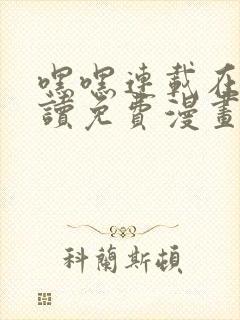 嘿嘿連載在
讀免費漫畫
科蘭斯頓